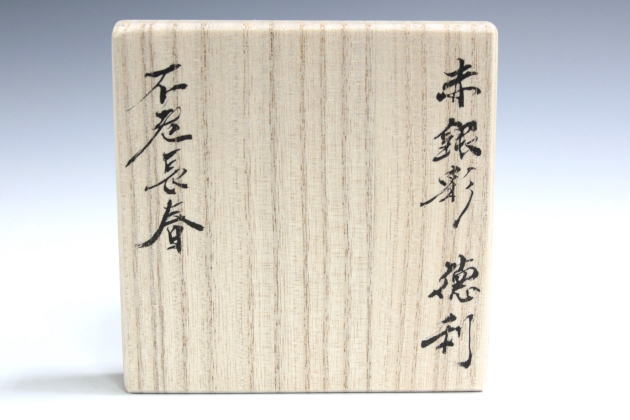 赤銀彩 徳利
不老長春